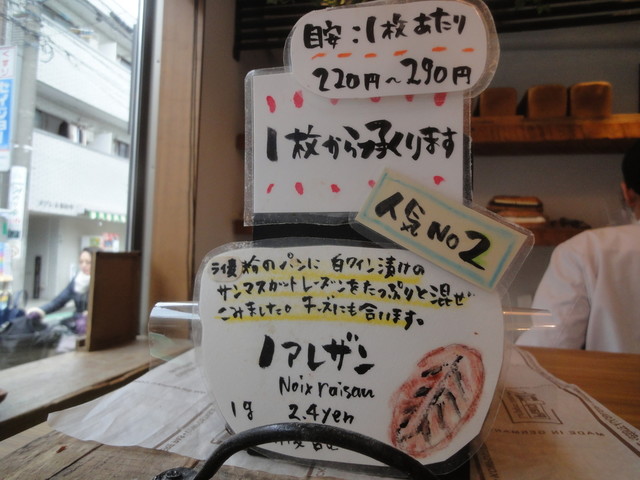 目安:1枚あたり
220円〜290円
1枚から承ります
人気No2
のパンに白ワイン漬けの
サンマスカットレーズンをたっぷりと混ぜ
こみました。チーズにも合います。
ノアレザン
Noix raisan
1g 2.4yen